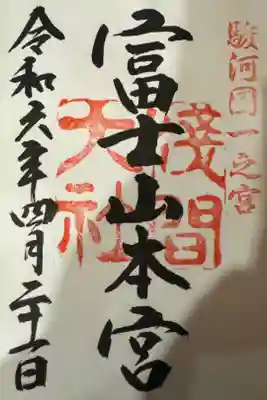 駿河国一之宮
富士山本宮
淺間大社
令和六年四月二十一日